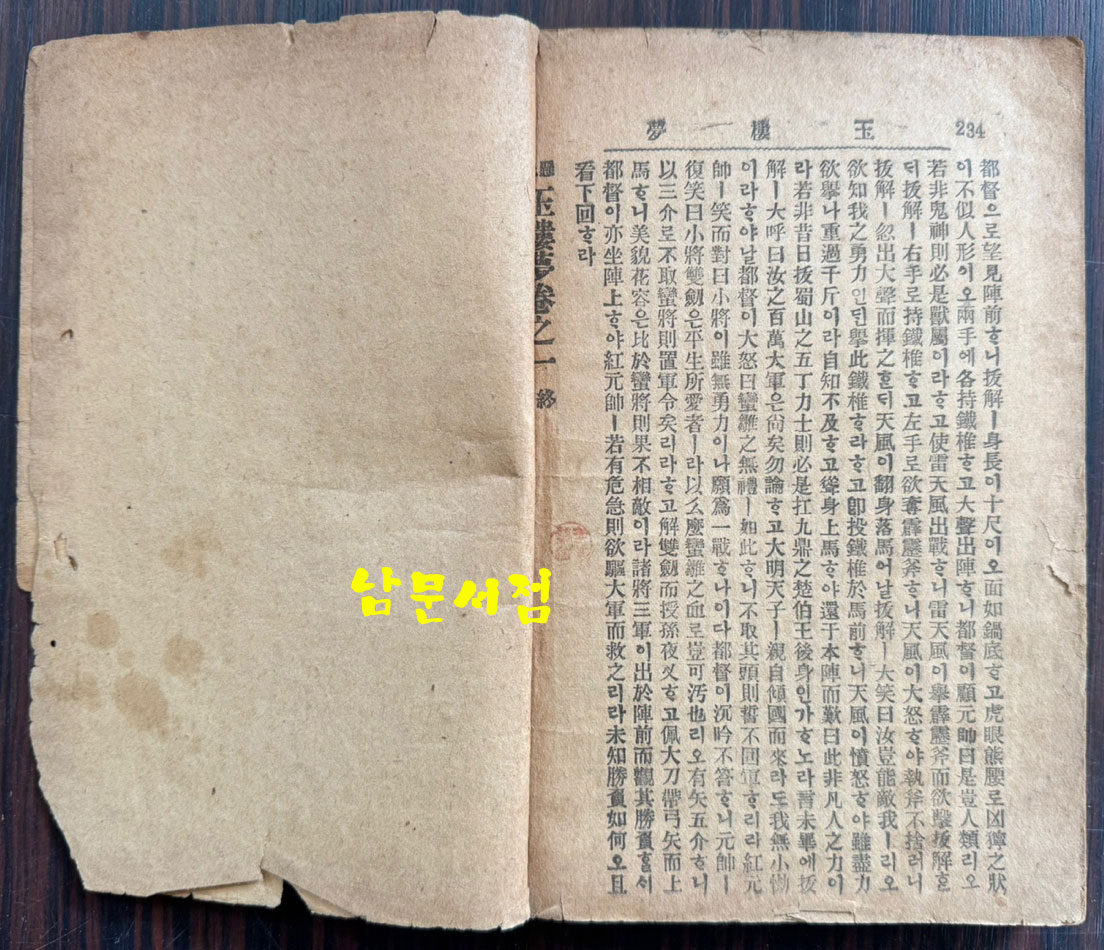 玉樓夢 234
都督으로望見陣前ᄒᆞ니拔解ㅣ身長이十尺이오面如鍋底ᄒᆞ고虎眼熊腰로凶獰之狀
이不似人形이오兩手에各持鐵椎ᄒᆞ고大聲出陣ᄒᆞ니都督이顧元帥曰是豈人類리오
若非鬼神則必是獸屬이라ᄒᆞ고使雷天風出戰ᄒᆞ니雷天風이擧霹靂斧而欲擊拔解ᄒᆞᆫ
ᄃᆡ拔解ㅣ右手로持鐵椎ᄒᆞ고左手로欲奪霹靂斧ᄒᆞ니天風이大怒ᄒᆞ야執斧不捨러니
拔解ㅣ忽出大聲而揮之ᄒᆞᆫᄃᆡ天風이翻身落馬어날拔解ㅣ大笑曰汝豈能敵我ㅣ리오
欲知我之勇力인ᄃᆡᆫ擧此鐵椎ᄒᆞ라ᄒᆞ고卽投鐵椎於馬前ᄒᆞ니天風이憤怒ᄒᆞ야雖盡力
欲擧나重過千斤이라自知不及ᄒᆞ고聳身上馬ᄒᆞ야還于本陣而歎曰此非凡人之力이
라若非昔日拔蜀山之五丁力士則必是扛九鼎之楚伯王後身인가ᄒᆞ노라言未畢에拔
解ㅣ大呼曰汝之百萬大軍은尙矣勿論ᄒᆞ고大明天子ㅣ親自傾國而來라도我無小㤼
이라ᄒᆞ야날都督이大怒曰蠻雛之無禮ㅣ如此ᄒᆞ니不取其頭則誓不回軍ᄒᆞ리라紅元
帥ㅣ笑而對曰小將이雖無勇力이나願爲一戰ᄒᆞ나이다都督이沉吟不答ᄒᆞ니元帥ㅣ
復笑曰小將雙劒은平生所愛者ㅣ라以么麽蠻雛之血로豈可汚也리오有矢五介ᄒᆞ니
以三介로不取蠻將則置軍令矣리라ᄒᆞ고解雙劒而授孫夜叉ᄒᆞ고佩大刀帶弓矢而上
馬ᄒᆞ니美貌花容은比於蠻將則果不相敵이라諸將三軍이出於陣前而觀其勝負ᄒᆞᆯᄉᆡ
都督이亦坐陣上ᄒᆞ야紅元帥ㅣ若有危急則欲驅大軍而救之리라未知勝負如何오且
看下回ᄒᆞ라
玉樓夢卷之一 終
남문서점